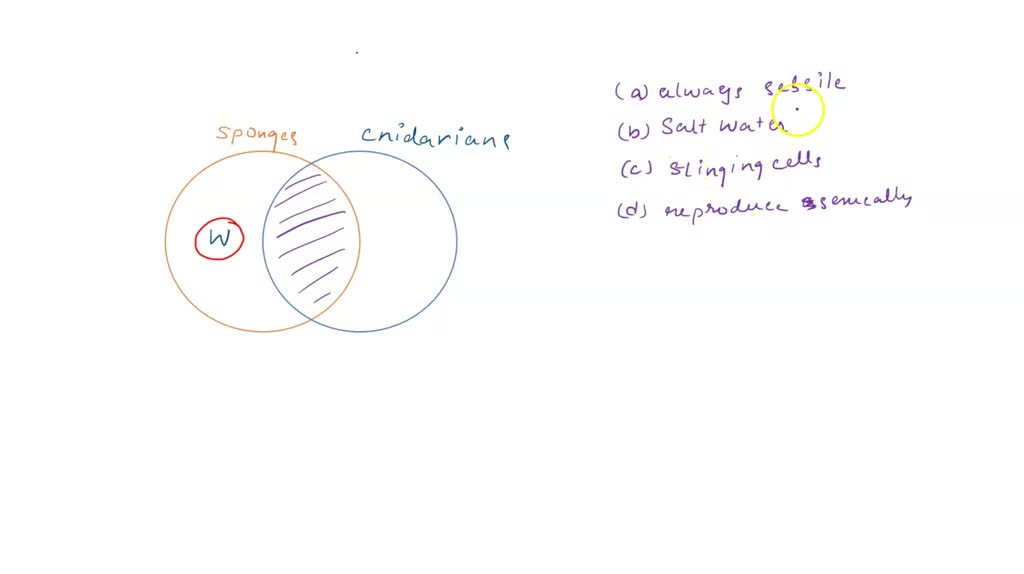 sponges
cnidarians
W
(a) always sessile
(b) Salt water
(c) stinging cells
(d) reproduce sexually